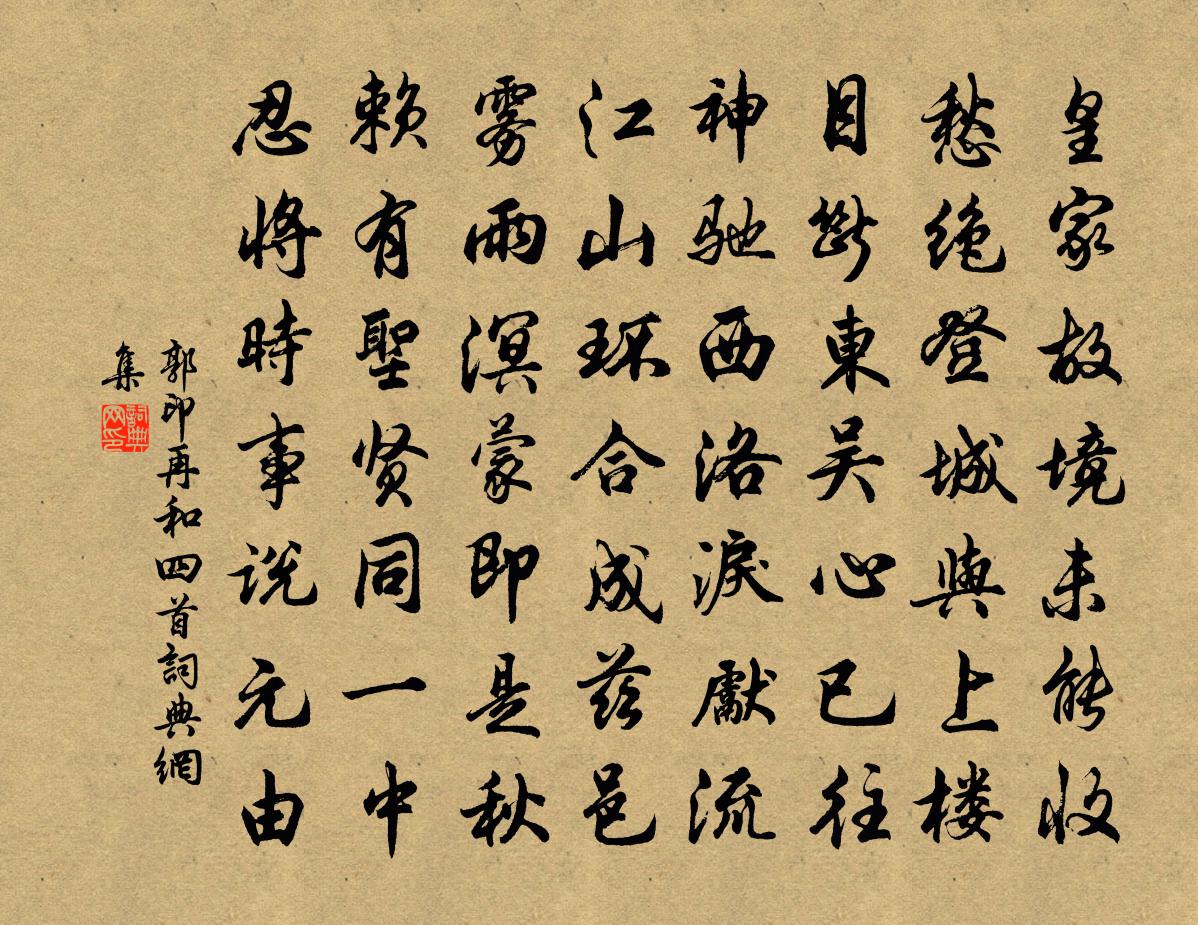 皇家故境未能收
愁绝登城與上楼
目斷東吴心已往
神驰西洛淚獻流
江山环合成兹邑
雾雨溟蒙即是秋
赖有聖贤同一中
忍將時事说元由
郭印再和四首詞典網
集
詞典
网印